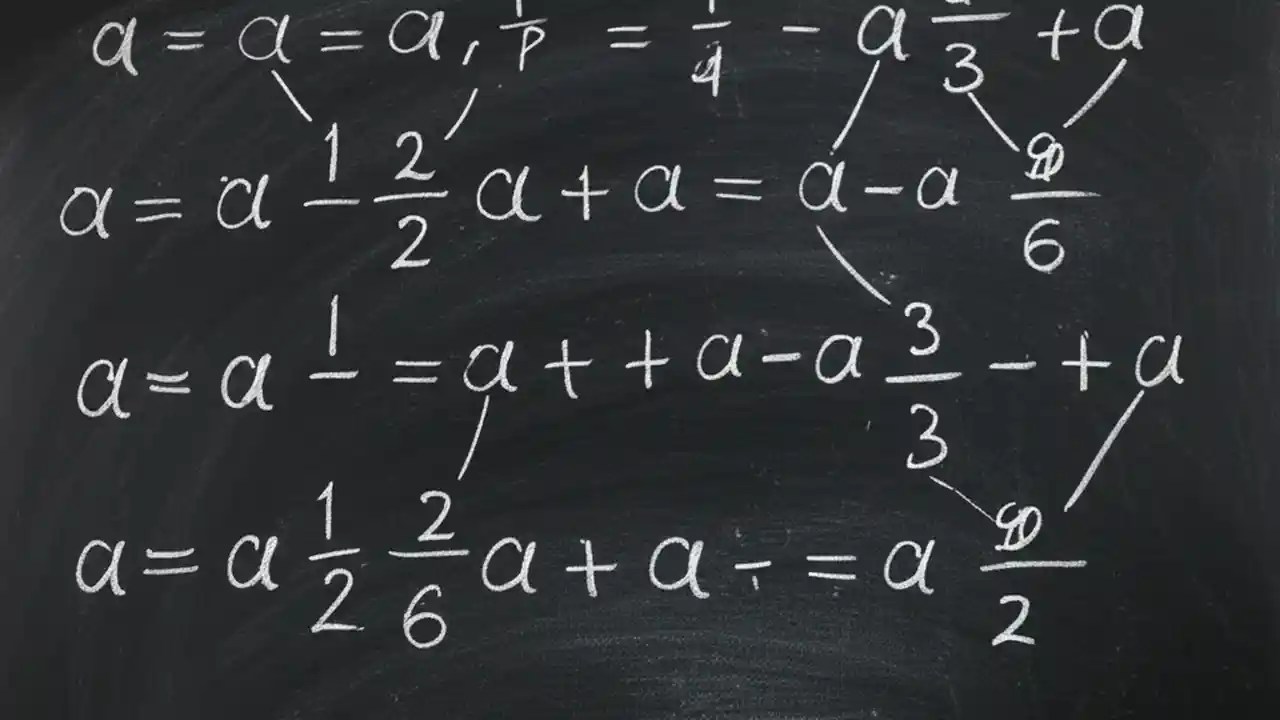 a = a = a, = - a 3 + a
a = a 1/ - 2/2 a + a = a - a /6
a = a 1/ = a + + a - a 3/3 - + a
a = a 1/2 2/6 a + a ÷ = a /2